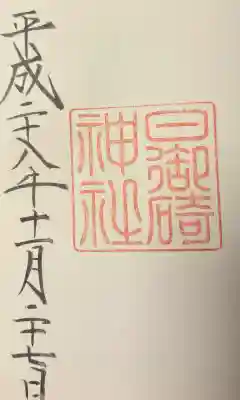 日御碕
神社
平成二十八年十一月二十七日